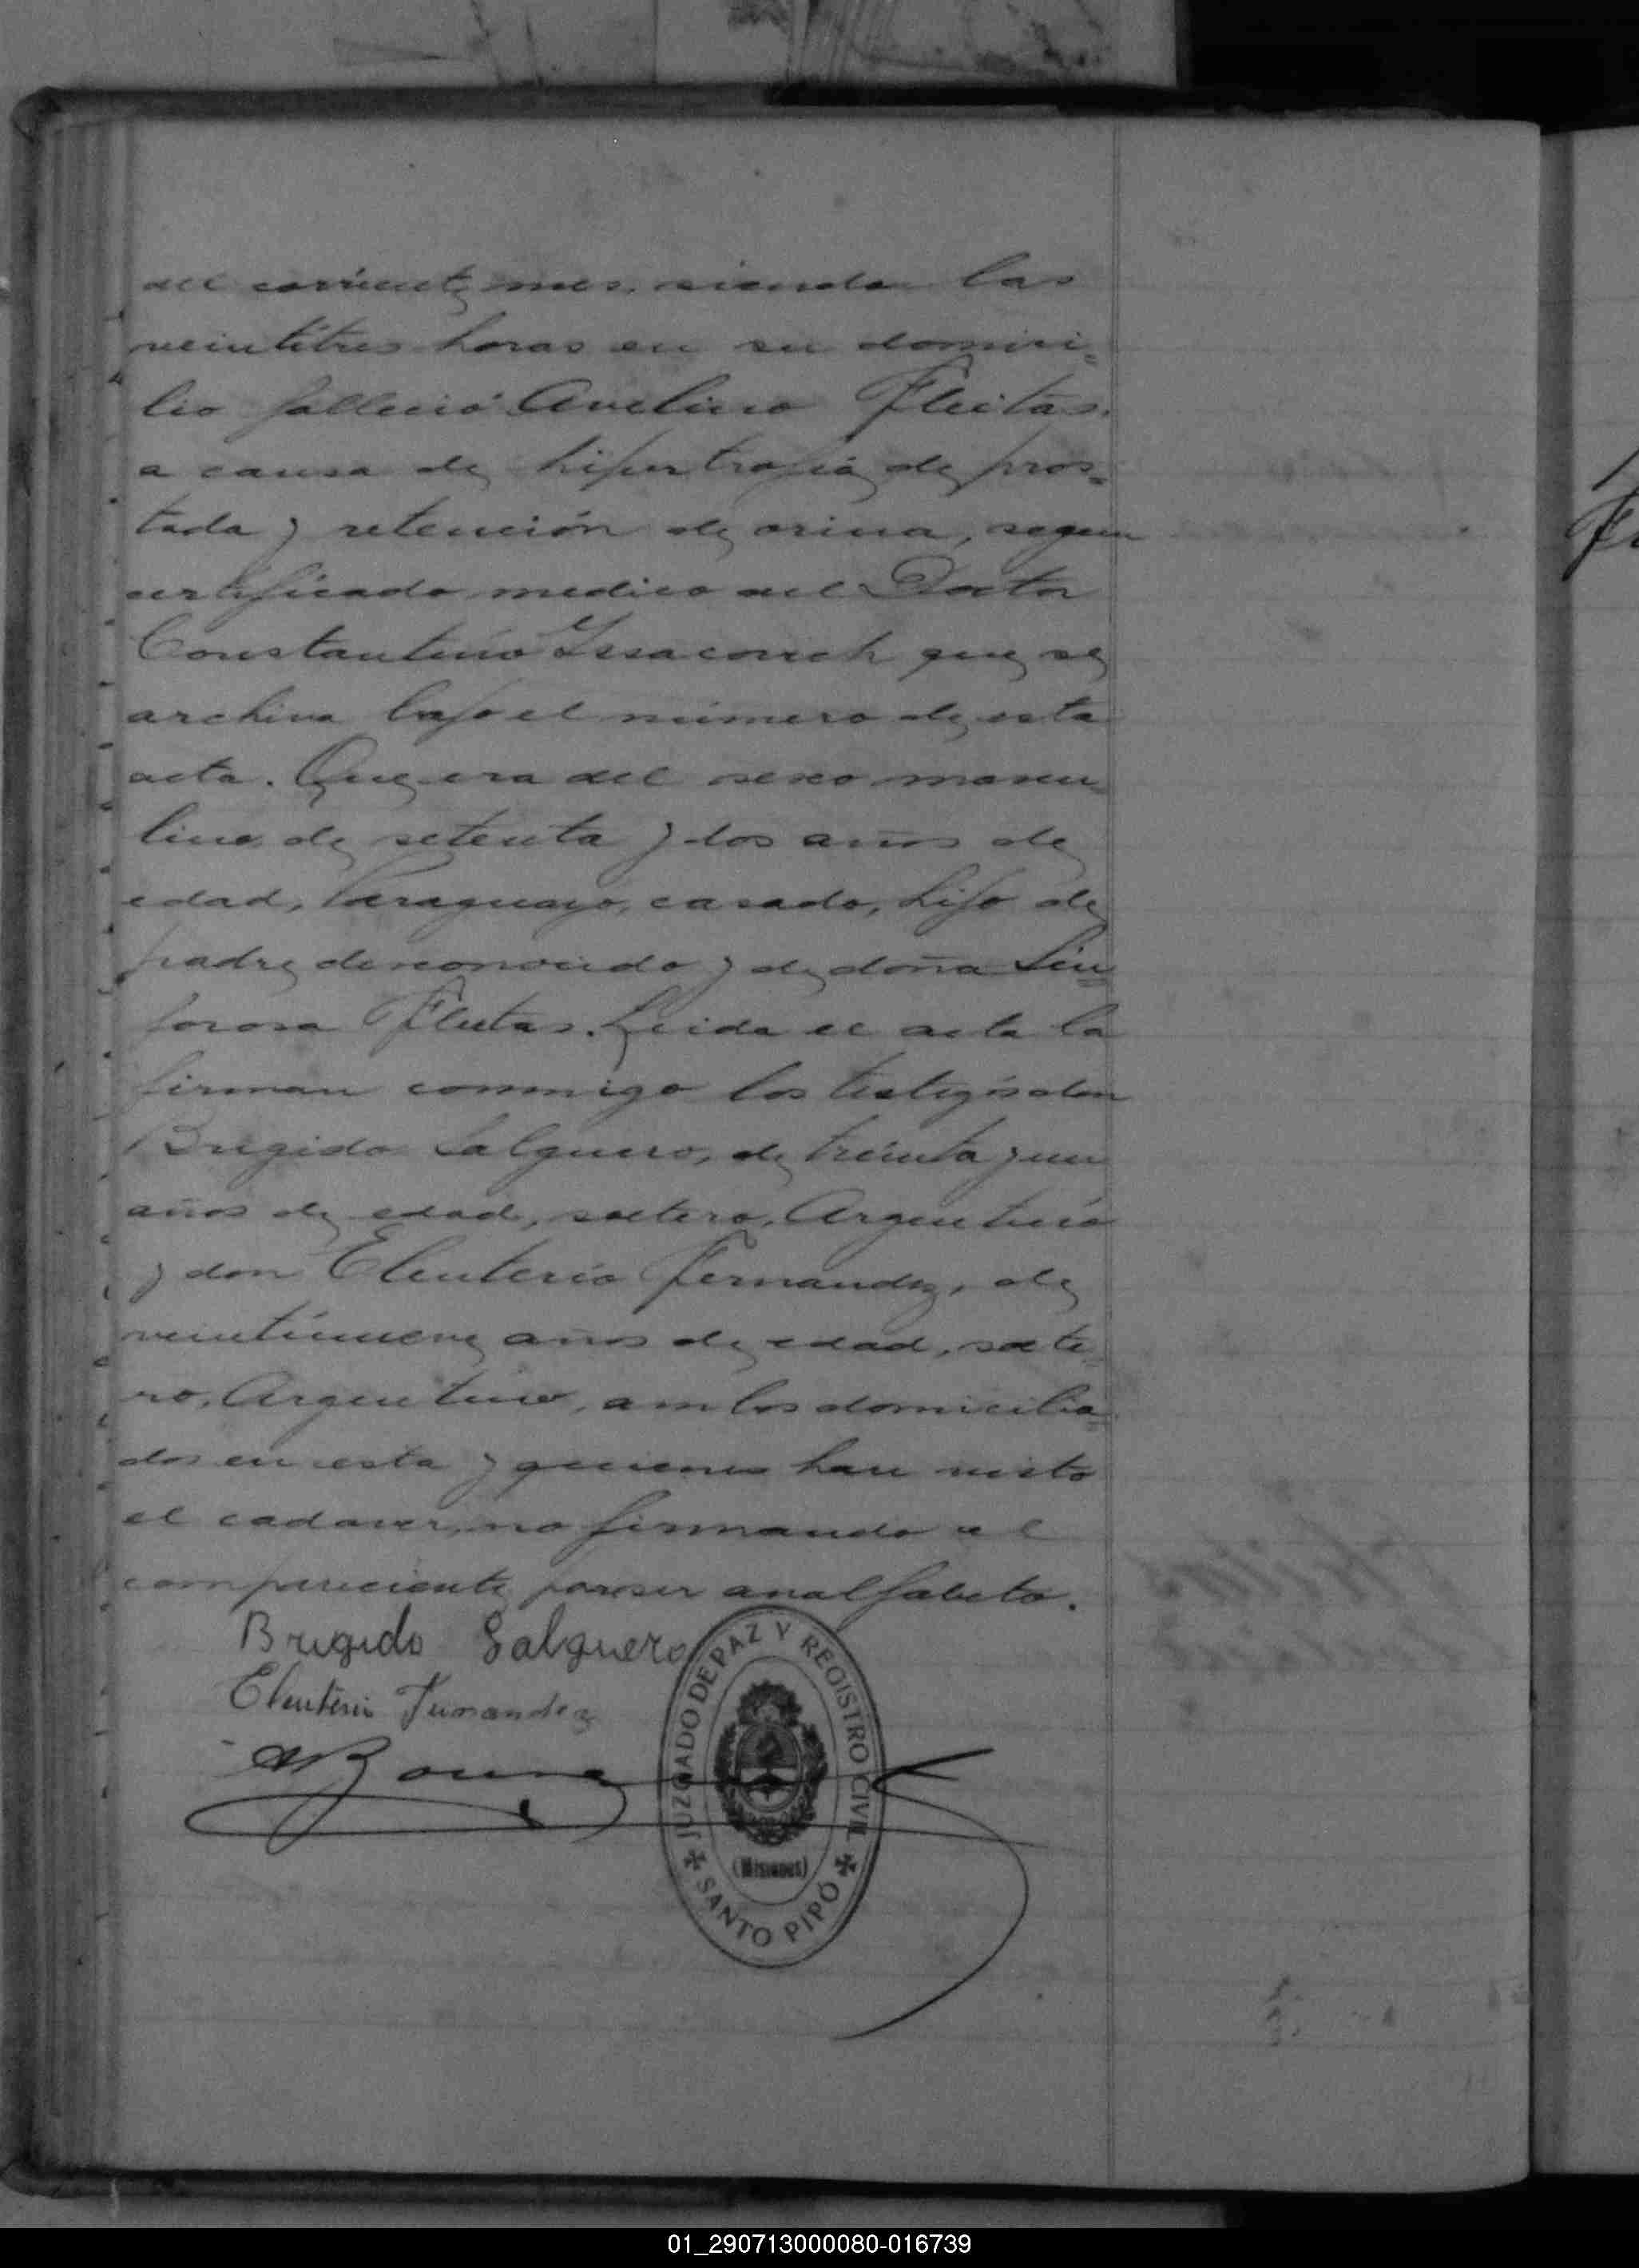 del corriente mes, siendo las
veintitres horas en su domici=
lio falleció Avelino Fleitas,
a causa de hipertrofia de pros=
tada y retención de orina, segun
certificado medico del Doctor
Constantino que se
archiva bajo el número de esta
acta. Que era del sexo mascu=
lino de setenta y dos años de
edad, Paraguayo, casado, hijo de
padre desconocido y de doña Sin=
forosa Fleitas. Leida el acta la
firman conmigo los testigos don
Brigido Salguero, de treinta y un
años de edad, soltero, Argentino
y don Eleuterio Fernandez, de
veintinueve años de edad, solte=
ro, Argentino, ambos domicilia=
dos en esta y quienes han visto
el cadaver, no firmando el
compareciente por ser analfabeto.
Brigido Salguero
Eleuterio Fernandez
JUZGADO DE PAZ Y REGISTRO CIVIL
(Misiones)
SANTO PIPÓ
01_290713000080-016739